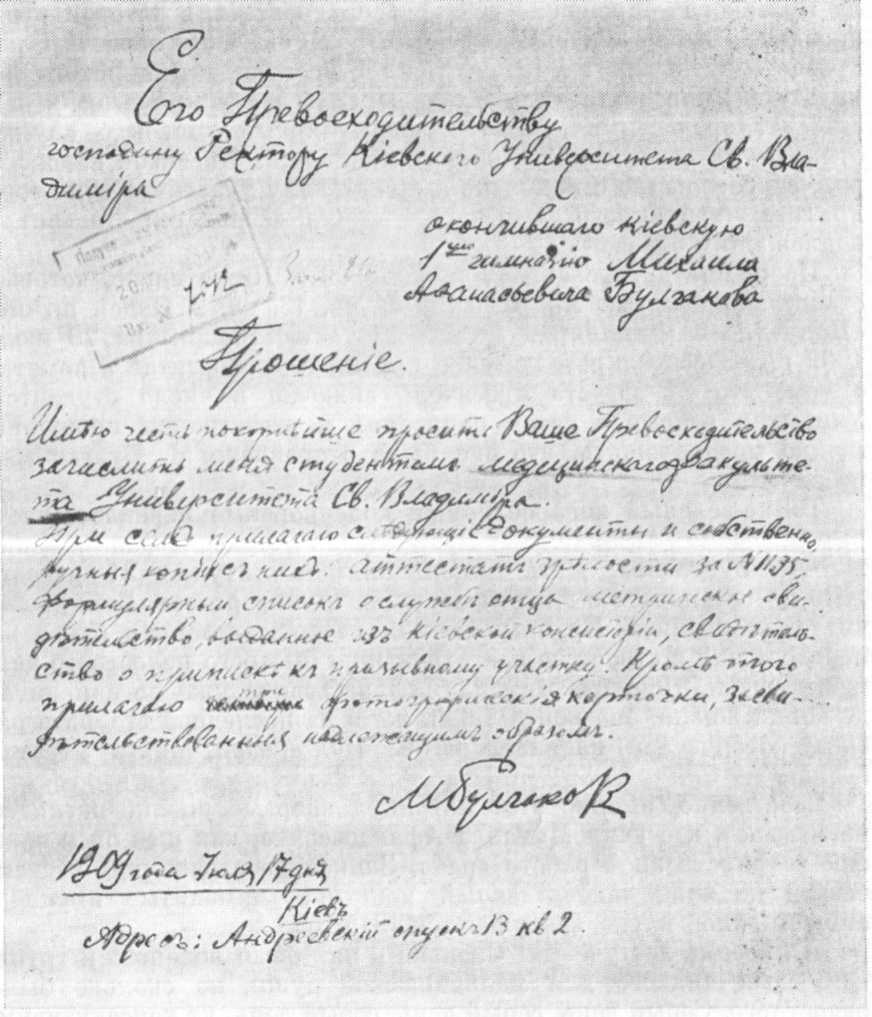 Его Превосходительству
господину Ректору Кіевскаго Университета Св. Вла-
диміра
окончившаго Кіевскую
1ую гимназію Михаила
Афанасьевича Булгакова
Прошеніе.
Имѣю честь покорнѣйше просить Ваше Превосходительство
зачислить меня студентомъ медицинскаго факульте-
та Университета Св. Владиміра.
При семъ прилагаю слѣдующіе документы и собственно-
ручныя копіи съ нихъ: аттестатъ зрѣлости за № 1135,
формулярный списокъ о службѣ отца, метрическое сви-
дѣтельство, выданное изъ Кіевской консисторіи, свидѣтель-
ство о припискѣ къ призывному участку. Кромѣ того
прилагаю три фотографическія карточки, засви-
дѣтельствованныя надлежащимъ образомъ.
МБулгаковъ
1909 года Іюля 17 дня
Кіевъ
Адресъ: Андреевскій спускъ 13 кв 2.